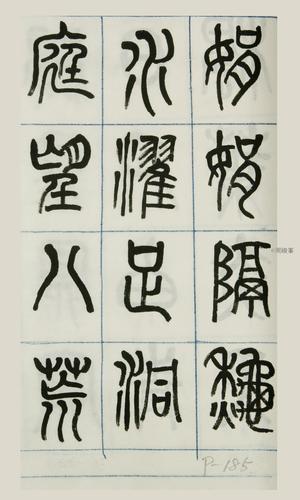 娟娟隔龝
水濯足洞
庭望八荒
P-185